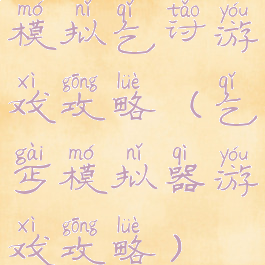 mó nǐ qǐ tǎo yóu
模拟乞讨游
xì gōng lüè qǐ
戏攻略(乞
gài mó nǐ qì yóu
丐模拟器游
xì gōng lüè
戏攻略)